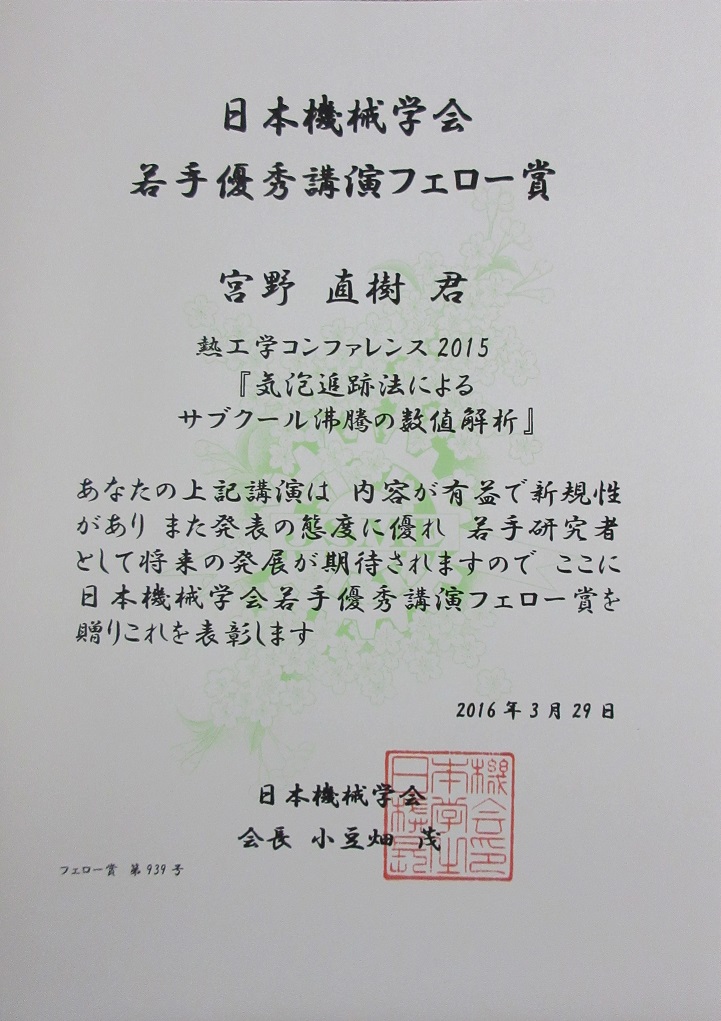 日本機械学会
若手優秀講演フェロー賞
宮野 直樹 君
熱工学コンファレンス2015
『気泡追跡法による
サブクール沸騰の数値解析』
あなたの上記講演は 内容が有益で新規性
があり また発表の態度に優れ 若手研究者
として将来の発展が期待されますので ここに
日本機械学会若手優秀講演フェロー賞を
贈りこれを表彰します
2016年3月29日
日本機械学会
会長 小豆畑 茂
フェロー賞 第939号